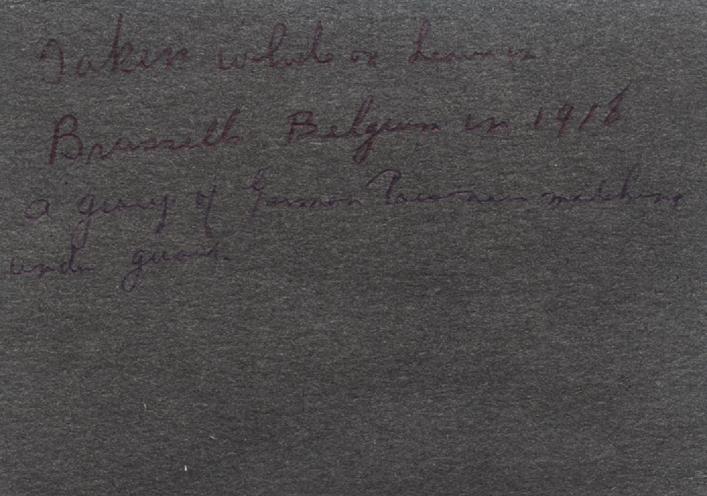 Taken while on leave in
Brussells Belgium in 1918
a gang of German Prisoners marching
under guard.